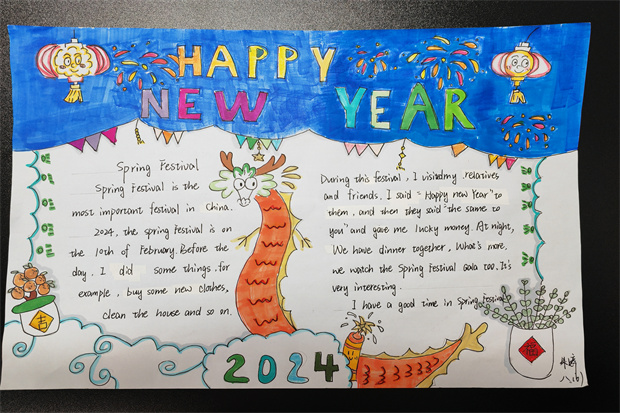 HAPPY
NEW YEAR
Spring Festival
Spring Festival is the
most important festival in China.
2024, the spring festival is on
the 10th of February. Before the
day, I did some things. for
example, buy some new clothes,
clean the house and so on.
During this festival, I visited my relatives
and friends. I said "Happy new Year" to
them, and then they said "the same to
you" and gave me lucky money. At night,
We have dinner together, What's more,
we watch the Spring Festival Gala too. It's
very interesting.
I have a good time in Spring Festival
吉
2024
福